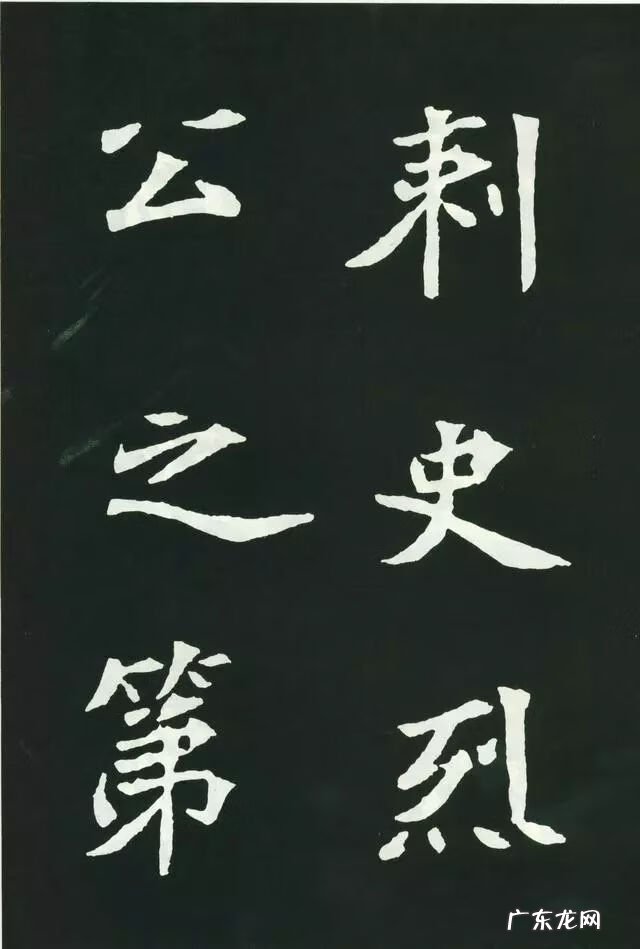 刺史烈
公之第
广东龙网